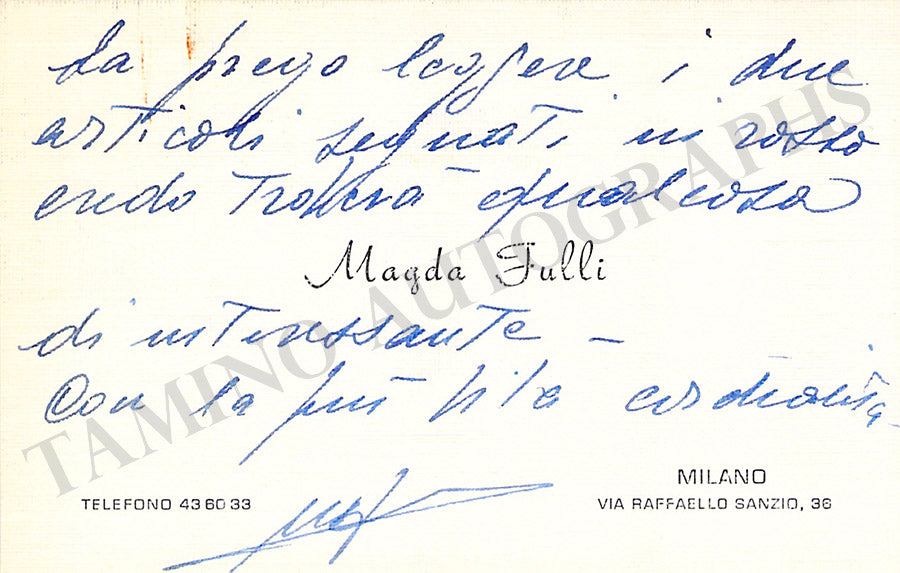 La prego leggere i due
articoli segnati in rosso
credo troverà qualcosa
Magda Fulli
di interessante –
Con la più viva cordialità
TELEFONO 43 60 33
MILANO
VIA RAFFAELLO SANZIO, 36
TAMINO AUTOGRAPHS